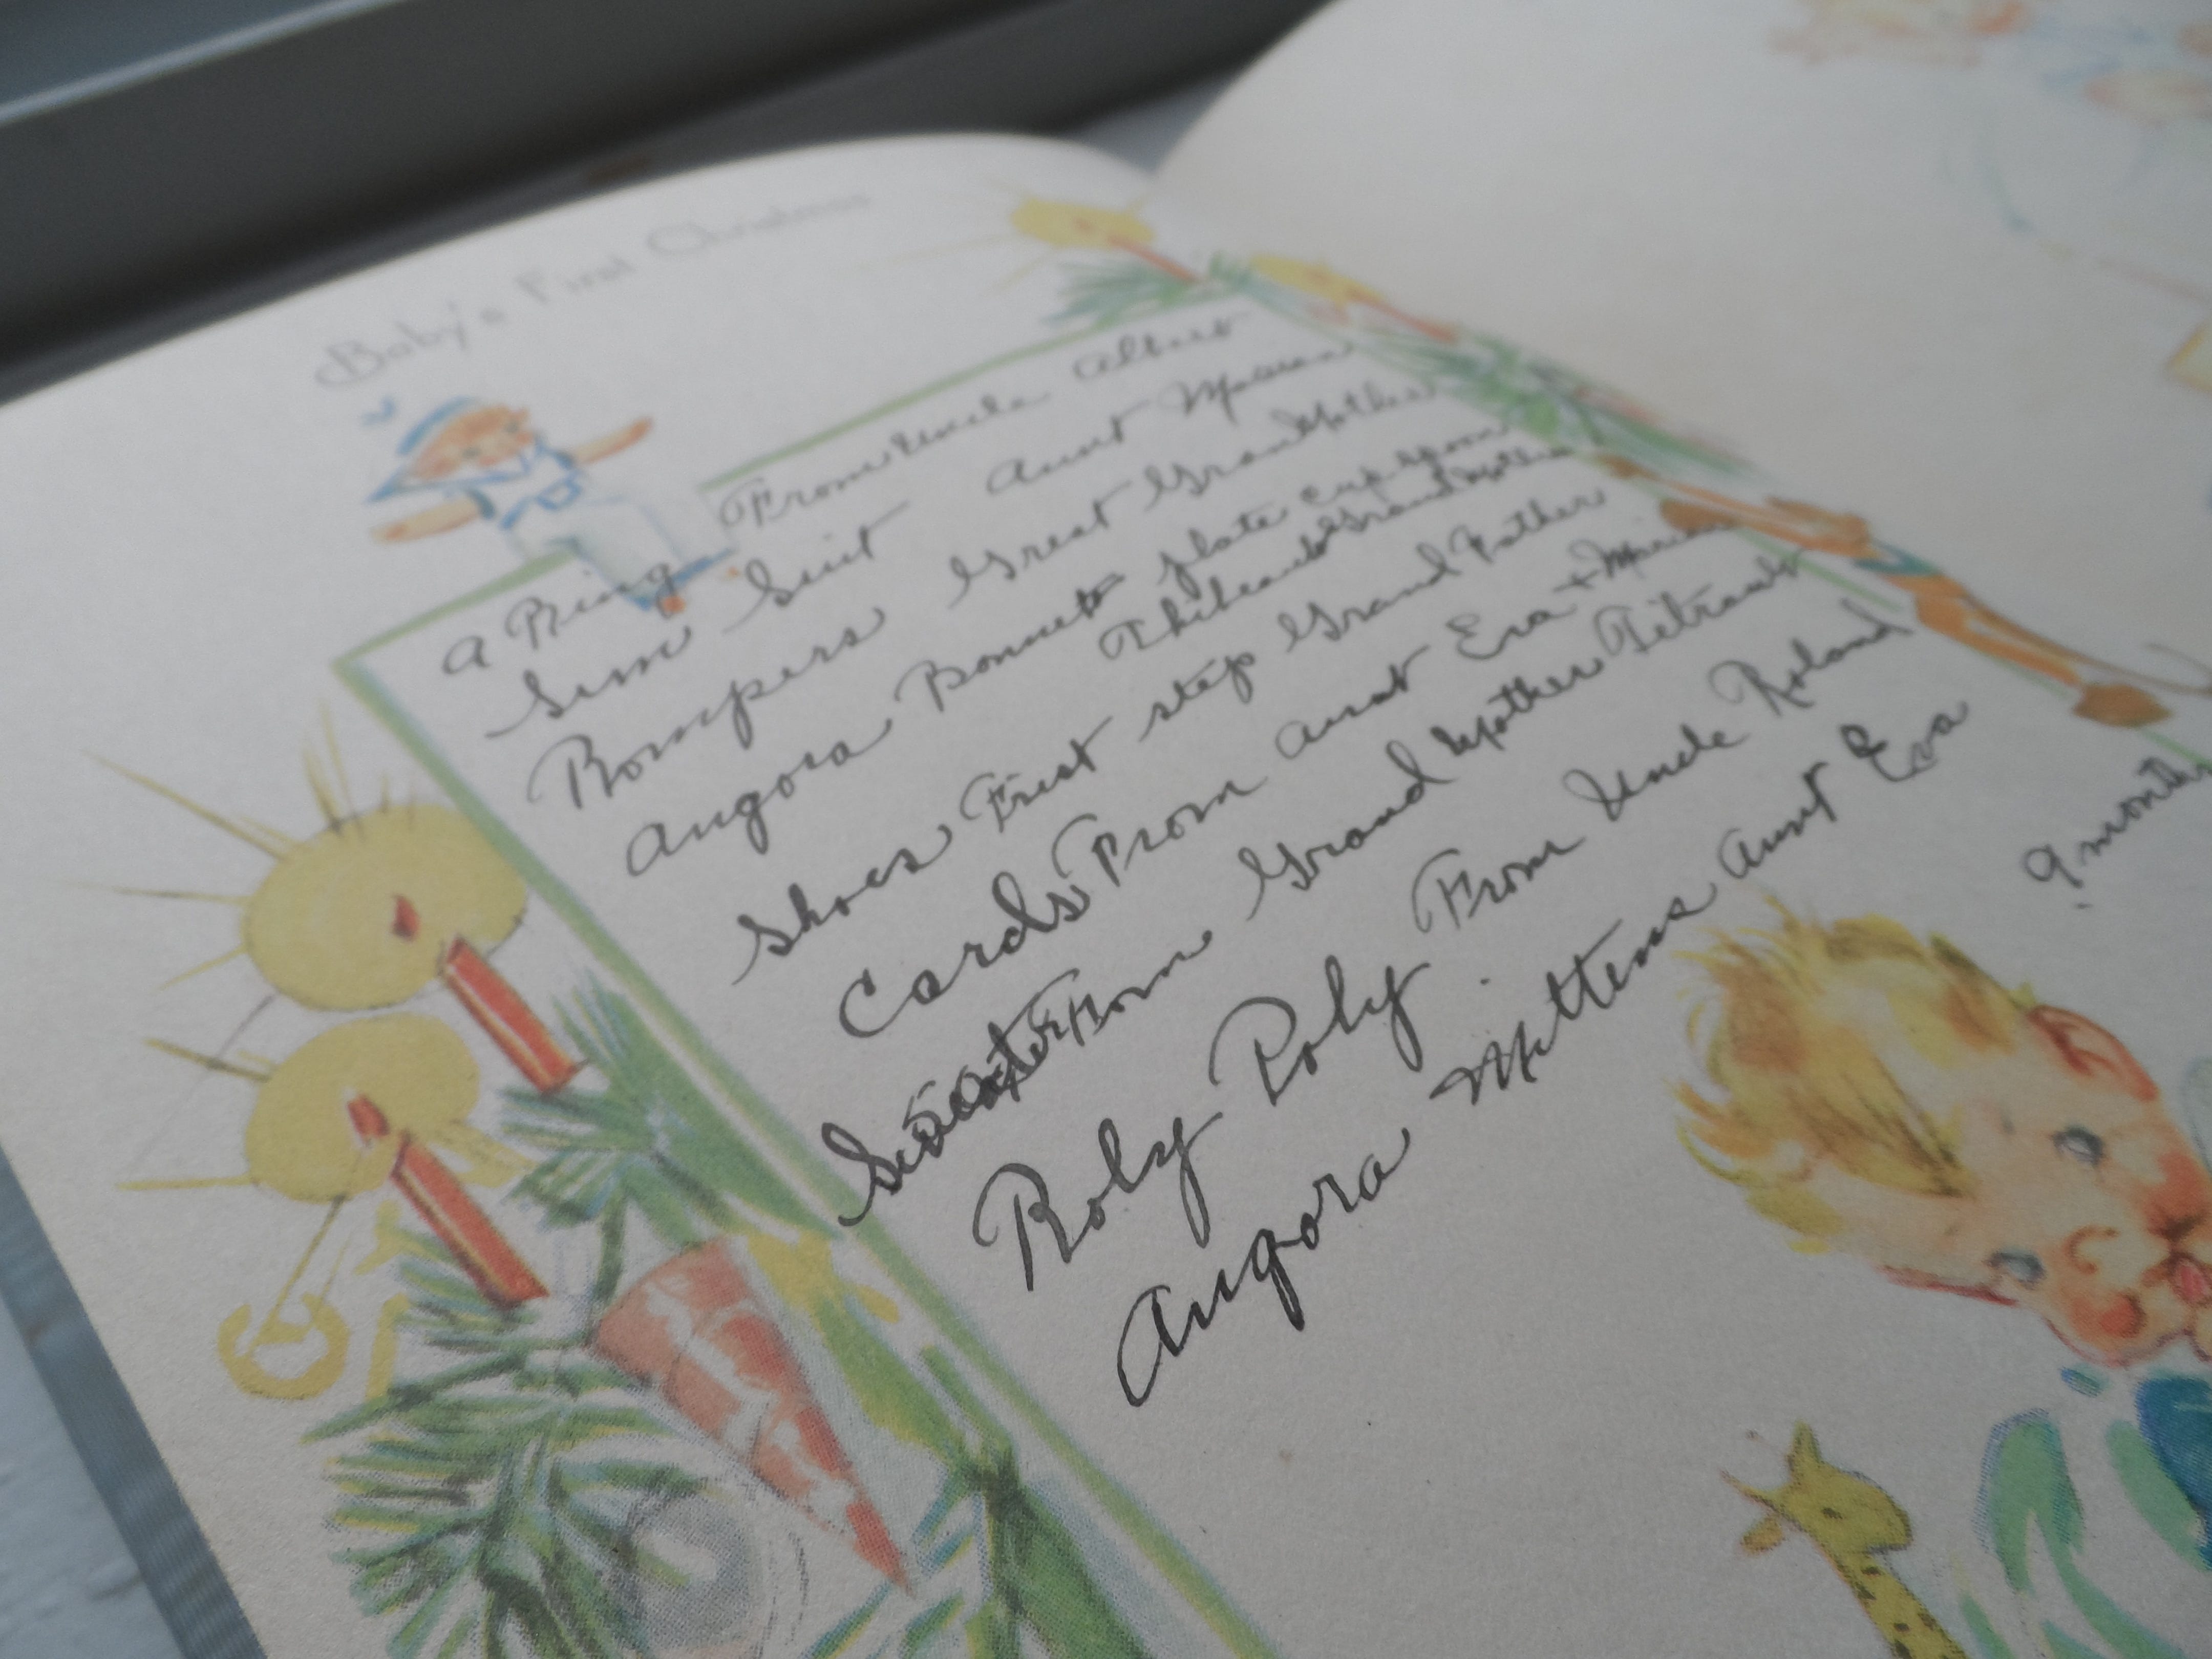 Baby's First Christmas
A Ring From Uncle Albert
Sun Suit Aunt
Rompers Great Grand Mother
Angora Bonnet plate cup spoon
Thibeault Grand Mother
Shoes First step Grand Father
Cards From Aunt Eva +
From Grand Mother Tetrault
Roly Poly From Uncle Roland
Angora Mittens Aunt Eva
9 months